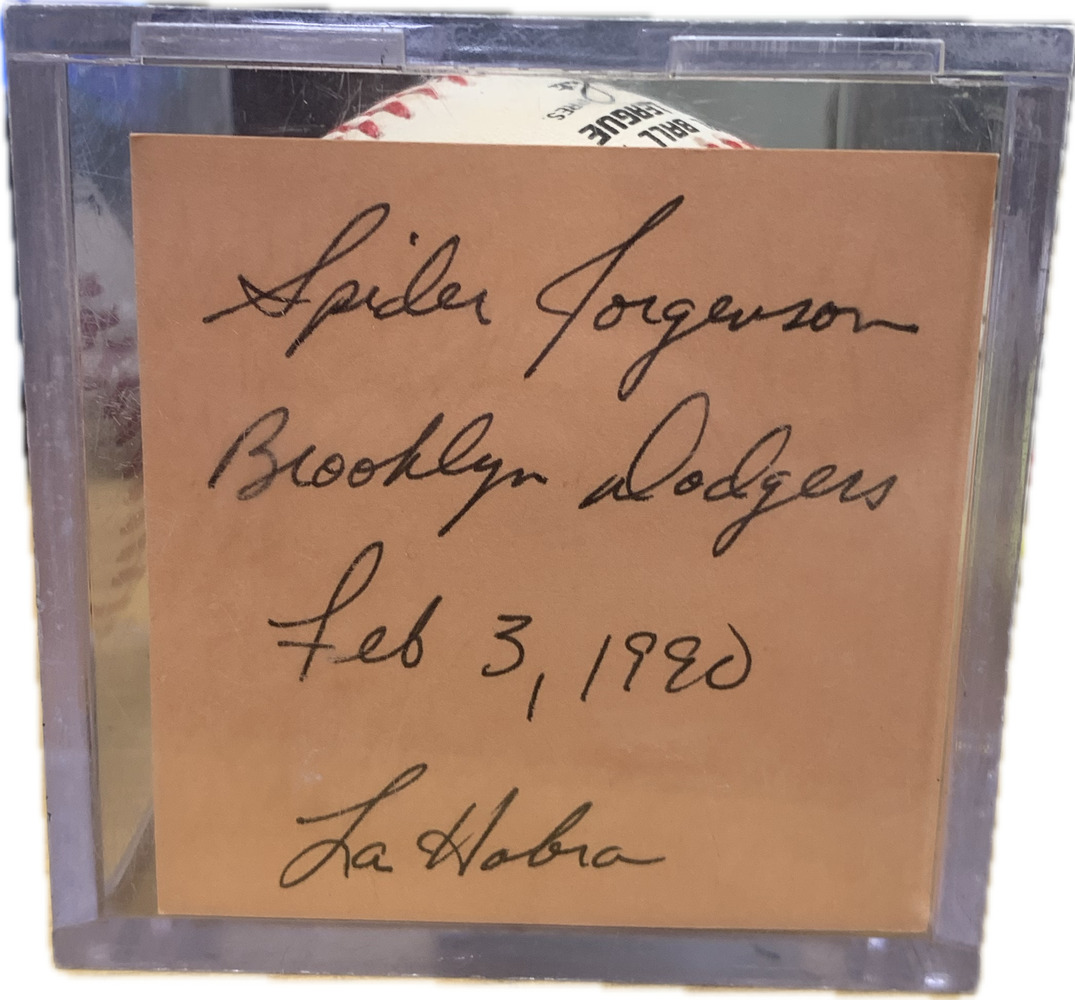 BALL
LEAGUE
Spider Jorgenson
Brooklyn Dodgers
Feb 3, 1990
La Habra